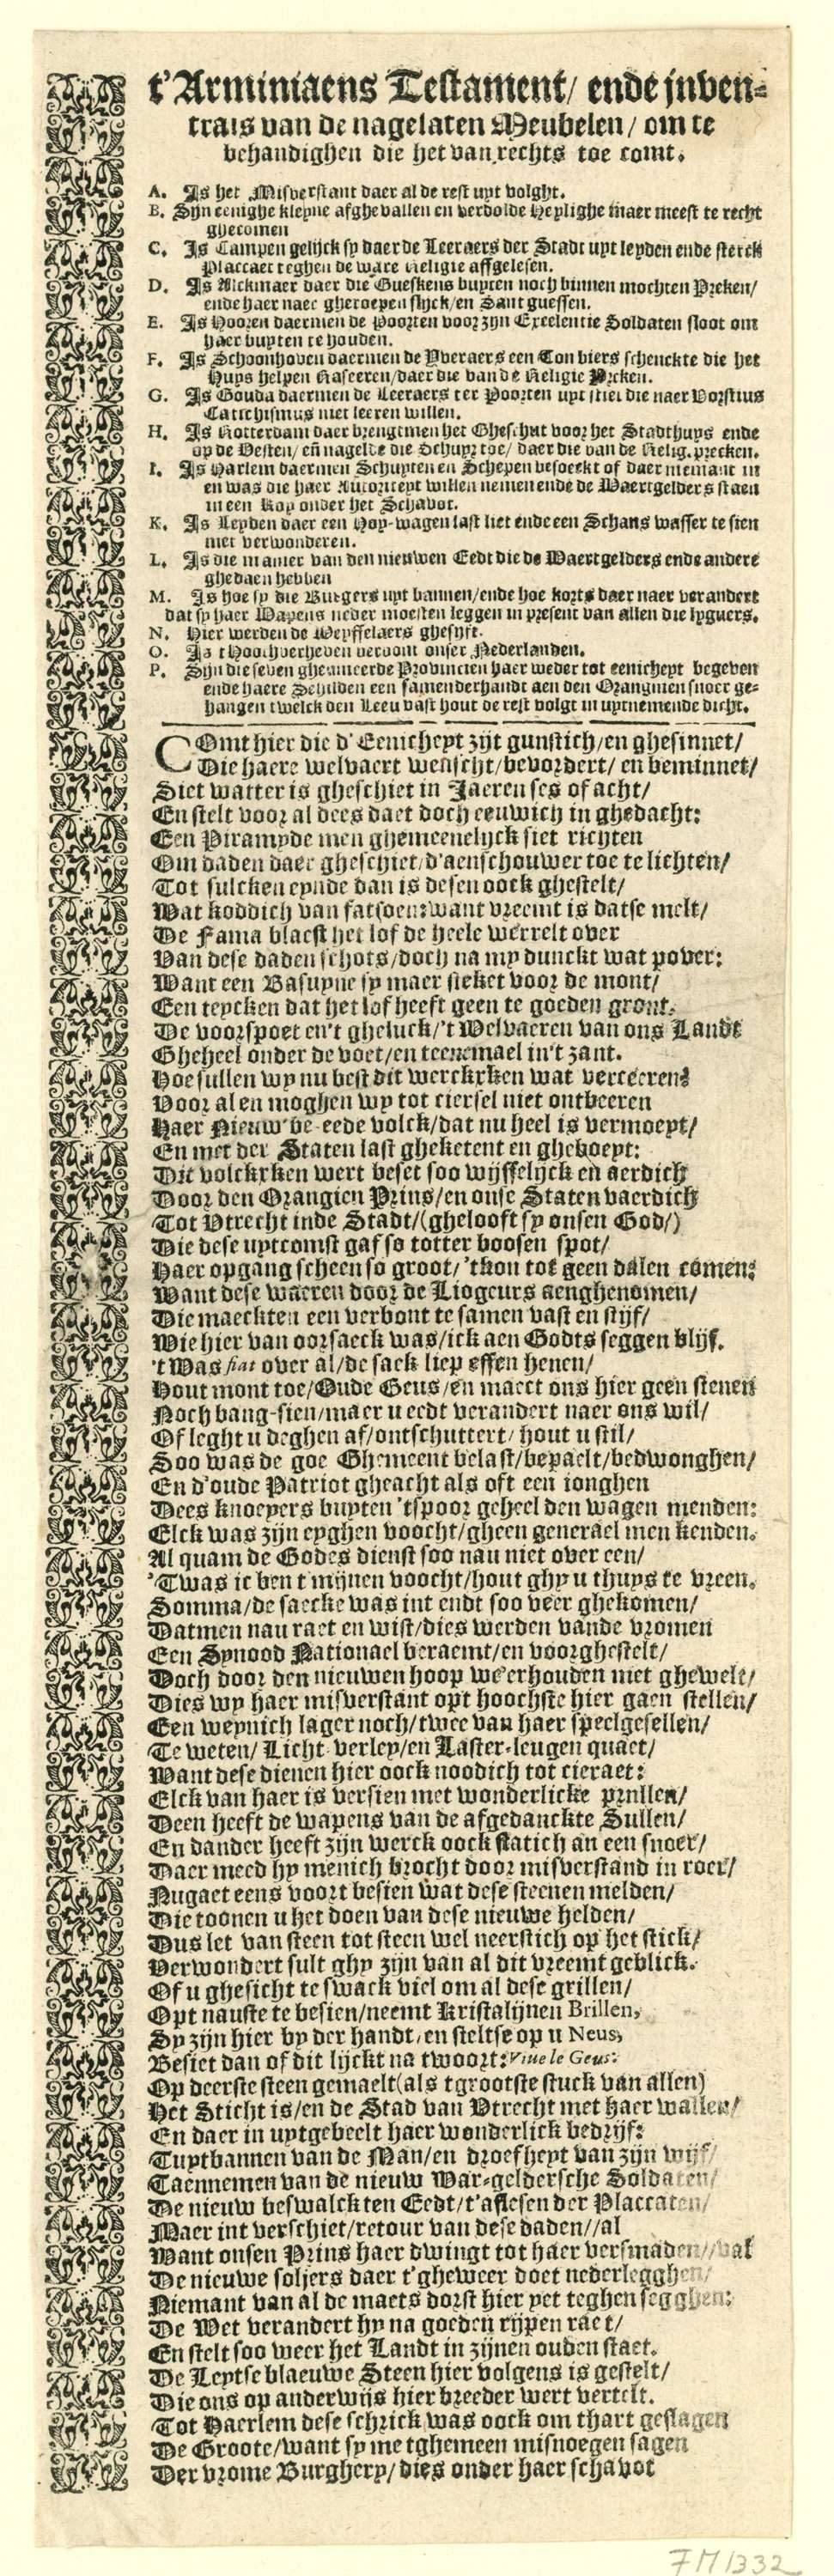 t'Arminiaens Testament/ ende inven-
trais van de nagelaten Meubelen/ om te
behandighen die het van rechts toe comt.
A. Is het Misverstant daer al de rest uyt volght.
B. Syn eenighe kleyne afghevallen en verdolde Heylighe maer meest te recht
ghecomen
C. Is Campen gelijck sy daer de Leeraers der Stadt uyt leyden ende sterck
Placcaet teghen de ware Religie affgelesen.
D. Is Alckmaer daer die Gueskens buyten noch binnen mochten Preken/
ende haer naer gheroepen slyck/ en Sant guessen.
E. Is Hooren daermen de Poorten voor zijn Excelentie Soldaten sloot om
haer buyten te houden.
F. Is Schoonhoven daermen de Yveraers een Ton biers schenckte die het
Huys helpen Raseeren/ daer die van de Religie Preken.
G. Is Gouda daermen de Leeraers ter Poorten uyt stiet die naer Vorstius
Catichismus niet leeren willen.
H. Is Rotterdam daer brengtmen het Gheschut voor het Stadthuys ende
op de Vesten/ eñ nagelde die Schuyr toe/ daer die van de Relig. precken.
I. Is Harlem daermen Schuyten en Schepen besoeckt of daer niemant in
en was die haer Autoriteyt willen nemen ende de Waertgelders staen
in een Koy onder het Schavot.
K. Is Leyden daer een Hoy-wagen last liet ende een Schans wasser te sien
met verwonderen.
L. Is die manier van den nieuwen Eedt die de Waertgelders ende andere
ghedaen hebben
M. Is hoe sy die Burgers uyt bannen/ ende hoe korts daer naer verandert
dat sy haer Wapens neder moesten leggen in present van allen die lyguers.
N. Hier werden de Weyffelaers ghesift.
O. Is t Hoochverheven vervont onser Nederlanden.
P. Sijn die seven gheunieerde Provincien haer weder tot eenicheyt begeven
ende haere Schilden een samenderhandt aen den Orangnien snoer ge-
hangen twelck den Leeu vast hout de rest volgt in uytnemende dicht.
COmt hier die d'Eenicheyt zijt gunstich/ en ghesinnet/
Die haere welvaert wenscht/ bevordert/ en beminnet/
Siet watter is gheschiet in Jaeren ses of acht/
En stelt voor al dees daet doch eeuwich in ghedacht:
Een Piramyde men ghemeenelyck siet richten
Om daden daer gheschiet/ d'aenschouwer toe te lichten/
Tot sulcken eynde dan is desen oock ghestelt/
Wat koddich van fatsoen: want vreemt is datse melt/
De Fama blaest het lof de heele werrelt over
Van dese daden schots/ doch na my dunckt wat pover:
Want een Basuyne sy maer steket voor de mont/
Een teycken dat het lof heeft geen te goeden gront.
De voorspoet en't gheluck/ 't Welvaeren van ons Landt
Gheheel onder de voet/ en teenemael in't zant.
Hoe sullen wy nu best dit werckxken wat verceeren?
Voor al en moghen wy tot ciersel niet ontbeeren
Haer Nieuw be-eede volck/ dat nu heel is vermoeyt/
En met der Staten last gheketent en gheboeyt:
Dit volckxken wert beset soo wijsselyck en aerdich
Door den Orangien Prins/ en onse Staten vaerdich
Tot Utrecht inde Stadt/ (ghelooft sy onsen God/)
Die dese uytcomst gaf so totter boosen spot/
Haer opgang scheen so groot/ 'tkon tot geen dalen comen:
Want dese waeren door de Liogeurs aenghenomen/
Die maeckten een verbont te samen vast en stijf/
Wie hier van oorsaeck was/ ick aen Godts seggen blijf.
't Was fiat over al/ de sack liep effen henen/
Hout mont toe/ Oude Geus/ en maeckt ons hier geen stenen
Noch bang-sien/ maer u eedt verandert naer ons wil/
Of leght u deghen af/ ontschuttert/ hout u stil/
Soo was de goe Ghemeent belast/ bepaelt/ bedwonghen/
En d'oude Patriot gheacht als oft een ionghen
Dees knoeyers buyten 'tspoor geheel den wagen menden:
Elck was zijn eyghen voocht/ gheen generael men kenden.
Al quam de Godes dienst soo nau niet over een/
'Twas ic ben t mijnen voocht/ hout ghy u thuys te vreen.
Somma/ de saecke was int endt soo veer ghekomen/
Datmen nau raet en wist/ dies werden vande vromen
Een Synood Nationael beraemt/ en voorghestelt/
Doch door den nieuwen hoop weerhouden met ghewelt/
Dies wy haer misverstant opt hoochste hier gaen stellen/
Een weynich lager noch/ twee van haer speelgesellen/
Te weten/ Licht-verley/ en Laster-leugen quaet/
Want dese dienen hier oock noodich tot cieraet:
Elck van haer is versien met wonderlicke prullen/
Deen heeft de wapens van de afgedanckte Sullen/
En dander heeft zijn werck oock statich an een snoer/
Daer meed hy menich brocht door misverstand in roer/
Nu gaet eens voort besien wat dese steenen melden/
Die toonen u het doen van dese nieuwe helden/
Dus let van steen tot steen wel neerstich op het stick/
Verwondert sult ghy zijn van al dit vreemt geblick.
Of u ghesicht te swack viel om al dese grillen/
Opt nauste te besien/ neemt Kristalijnen Brillen,
Sy zijn hier by der handt/ en steltse op u Neus,
Besiet dan of dit lijckt na twoort: Vive le Geus:
Op deerste steen gemaelt (als tgrootste stuck van allen)
Het Sticht is/ en de Stad van Utrecht met haer wallen/
En daer in uytgebeelt haer wonderlick bedrijf:
Tuytbannen van de Man/ en droefheyt van zijn wijf/
Taennemen van de nieuw War-geldersche Soldaten/
De nieuw beswalckten Eedt/ t'aflesen der Placcaten/
Maer int verschiet/ retour van dese daden//al
Want onsen Prins haer dwingt tot haer versmaden//val
De nieuwe soljers daer t'gheweer doet nederlegghen/
Niemant van al de maets dorst hier yet teghen segghen:
De Wet verandert hy na goeden rijpen raet/
En stelt soo weer het Landt in zijnen ouden staet.
De Leytse blaeuwe Steen hier volgens is gestelt/
Die ons op anderwijs hier breeder wert vertelt.
Tot Haerlem dese schrick was oock om thart geslagen
De Groote/ want sy met ghemeen misnoegen sagen
Der vrome Burghery/ dies onder haer schavot
7M1332